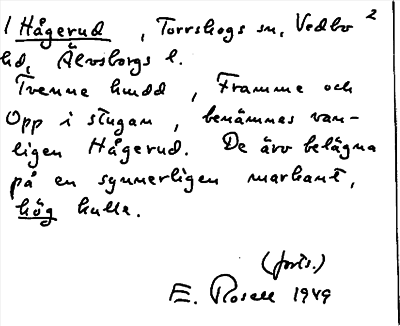 1 Hågerud, Torrskogs sn, Vedbo 2
hd, Älvsborgs l.
Tvenne hudd, Framme och
Opp i stugan, benämnas van-
ligen Hågerud. De äro belägna
på en synnerligen markant,
hög kulle.
(forts.)
E. Rosell 1949